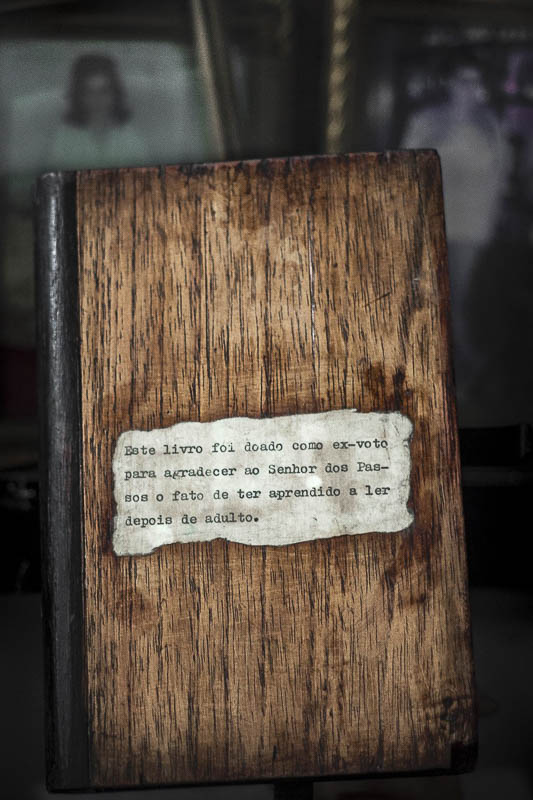 Este livro foi doado como ex-voto
para agradecer ao Senhor dos Pas-
sos o fato de ter aprendido a ler
depois de adulto.